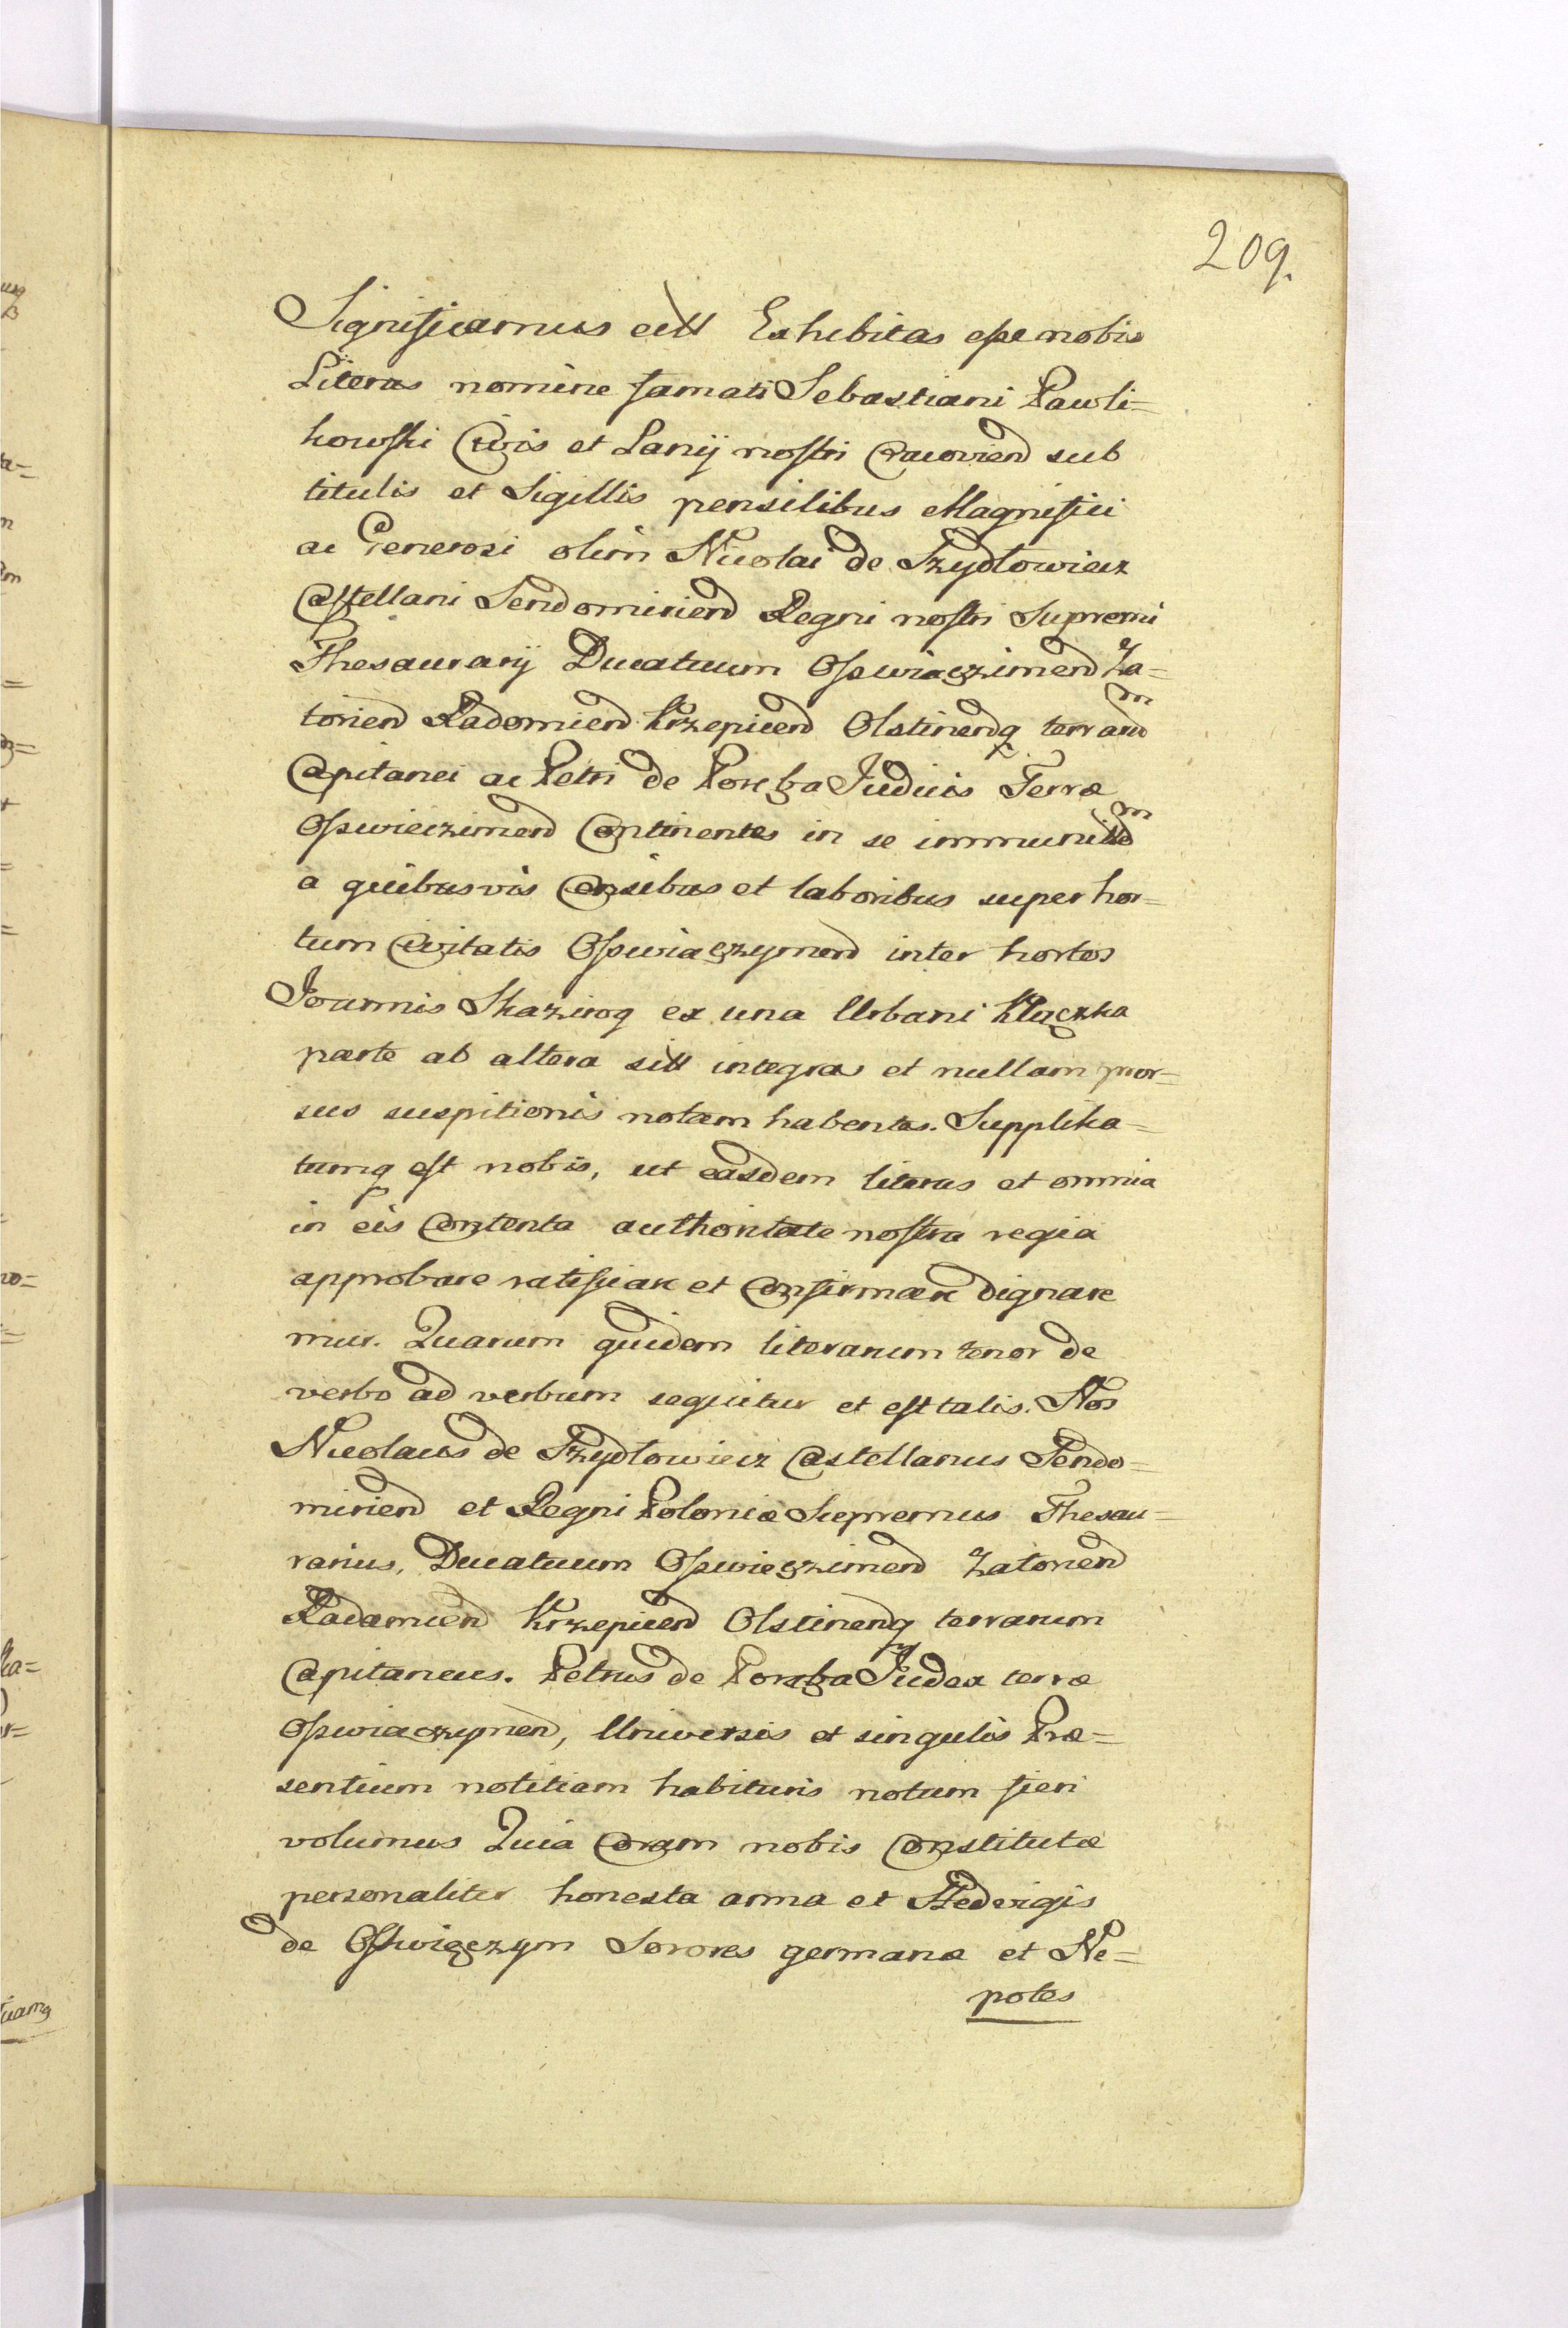 209.
Significamus ettt Exhibitas esse nobis
Literas nomine famati Sebastiani Pawli=
kowski Civis et Lanij nostri Cracoviend sub
titulis et Sigillis pensilibus Magnifici
ac Generosi olim Nicolai de Szydlowiecz
Castellani Sendomiriend Regni nostri Supremi
Thesaurarij Ducatuum Osswiaęzimend Za=
toriend Radomiend Krzepicend Olstinendq terrarum
Capitanei ac Petri de Poręba Judicis Terræ
Osswieczimend Continentes in se immunitem
a quibusvis Censibus et laboribus super hor=
tum Civitatis Osswiaęzymend inter hortos
Joannis Skazirog ex una Urbani Kluczka
parte ab altera sitt integras et nullam pror=
sus suspitionis notam habentes. Supplika=
tumq est nobis, ut easdem literas et omnia
in eis Contenta authoritate nostra regia
approbare ratificare et Confirmare dignare
mur. Quarum quidem literarum tenor de
verbo ad verbum sequitur et est talis. Nos
Nicolaus de Szydlowiecz Castellanus Sendo=
miriend et Regni Poloniæ Supremus Thesau=
rarius, Ducatuum Osswieęzimend Zatoriend
Radamiend Krzepicend Olstinendq terrarum
Capitaneus. Petrus de Poraba Judex terræ
Osswiaczymend, Universis et singulis Præ=
sentium notitiam habituris notum fieri
volumus Quia Coram nobis Constitutæ
personaliter honesta anna et Hedvigis
de Osswięczym Sorores germanæ et Ne=
potes